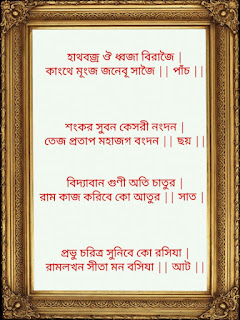 হাথবজ্র ঔ ধ্বজা বিরাজৈ |
কাংথে মূংজ জনেবূ সাজৈ || পাঁচ ||
শংকর সুবন কেসরী নংদন |
তেজ প্রতাপ মহাজগ বংদন || ছয় ||
বিদ্যাবান গুণী অতি চাতুর |
রাম কাজ করিবে কো আতুর || সাত |
প্রভু চরিত্র সুনিবে কো রসিযা |
রামলখন সীতা মন বসিযা || আট ||